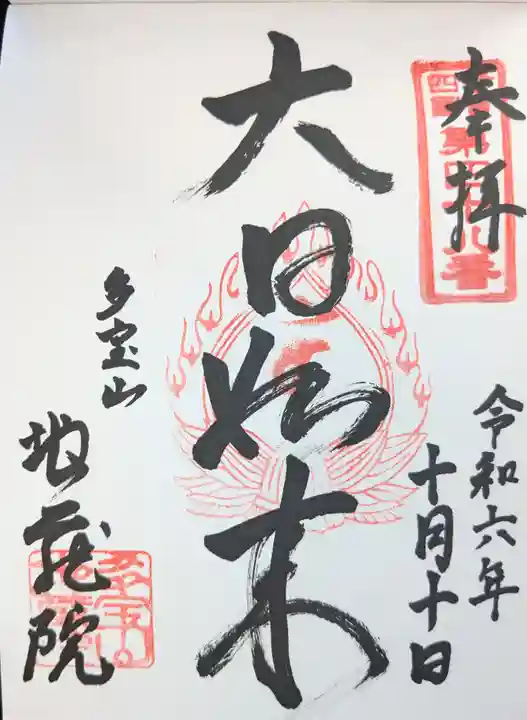 奉拝
四国第四十八番
令和六年
十月十日
大日如来
多宝山
地蔵院